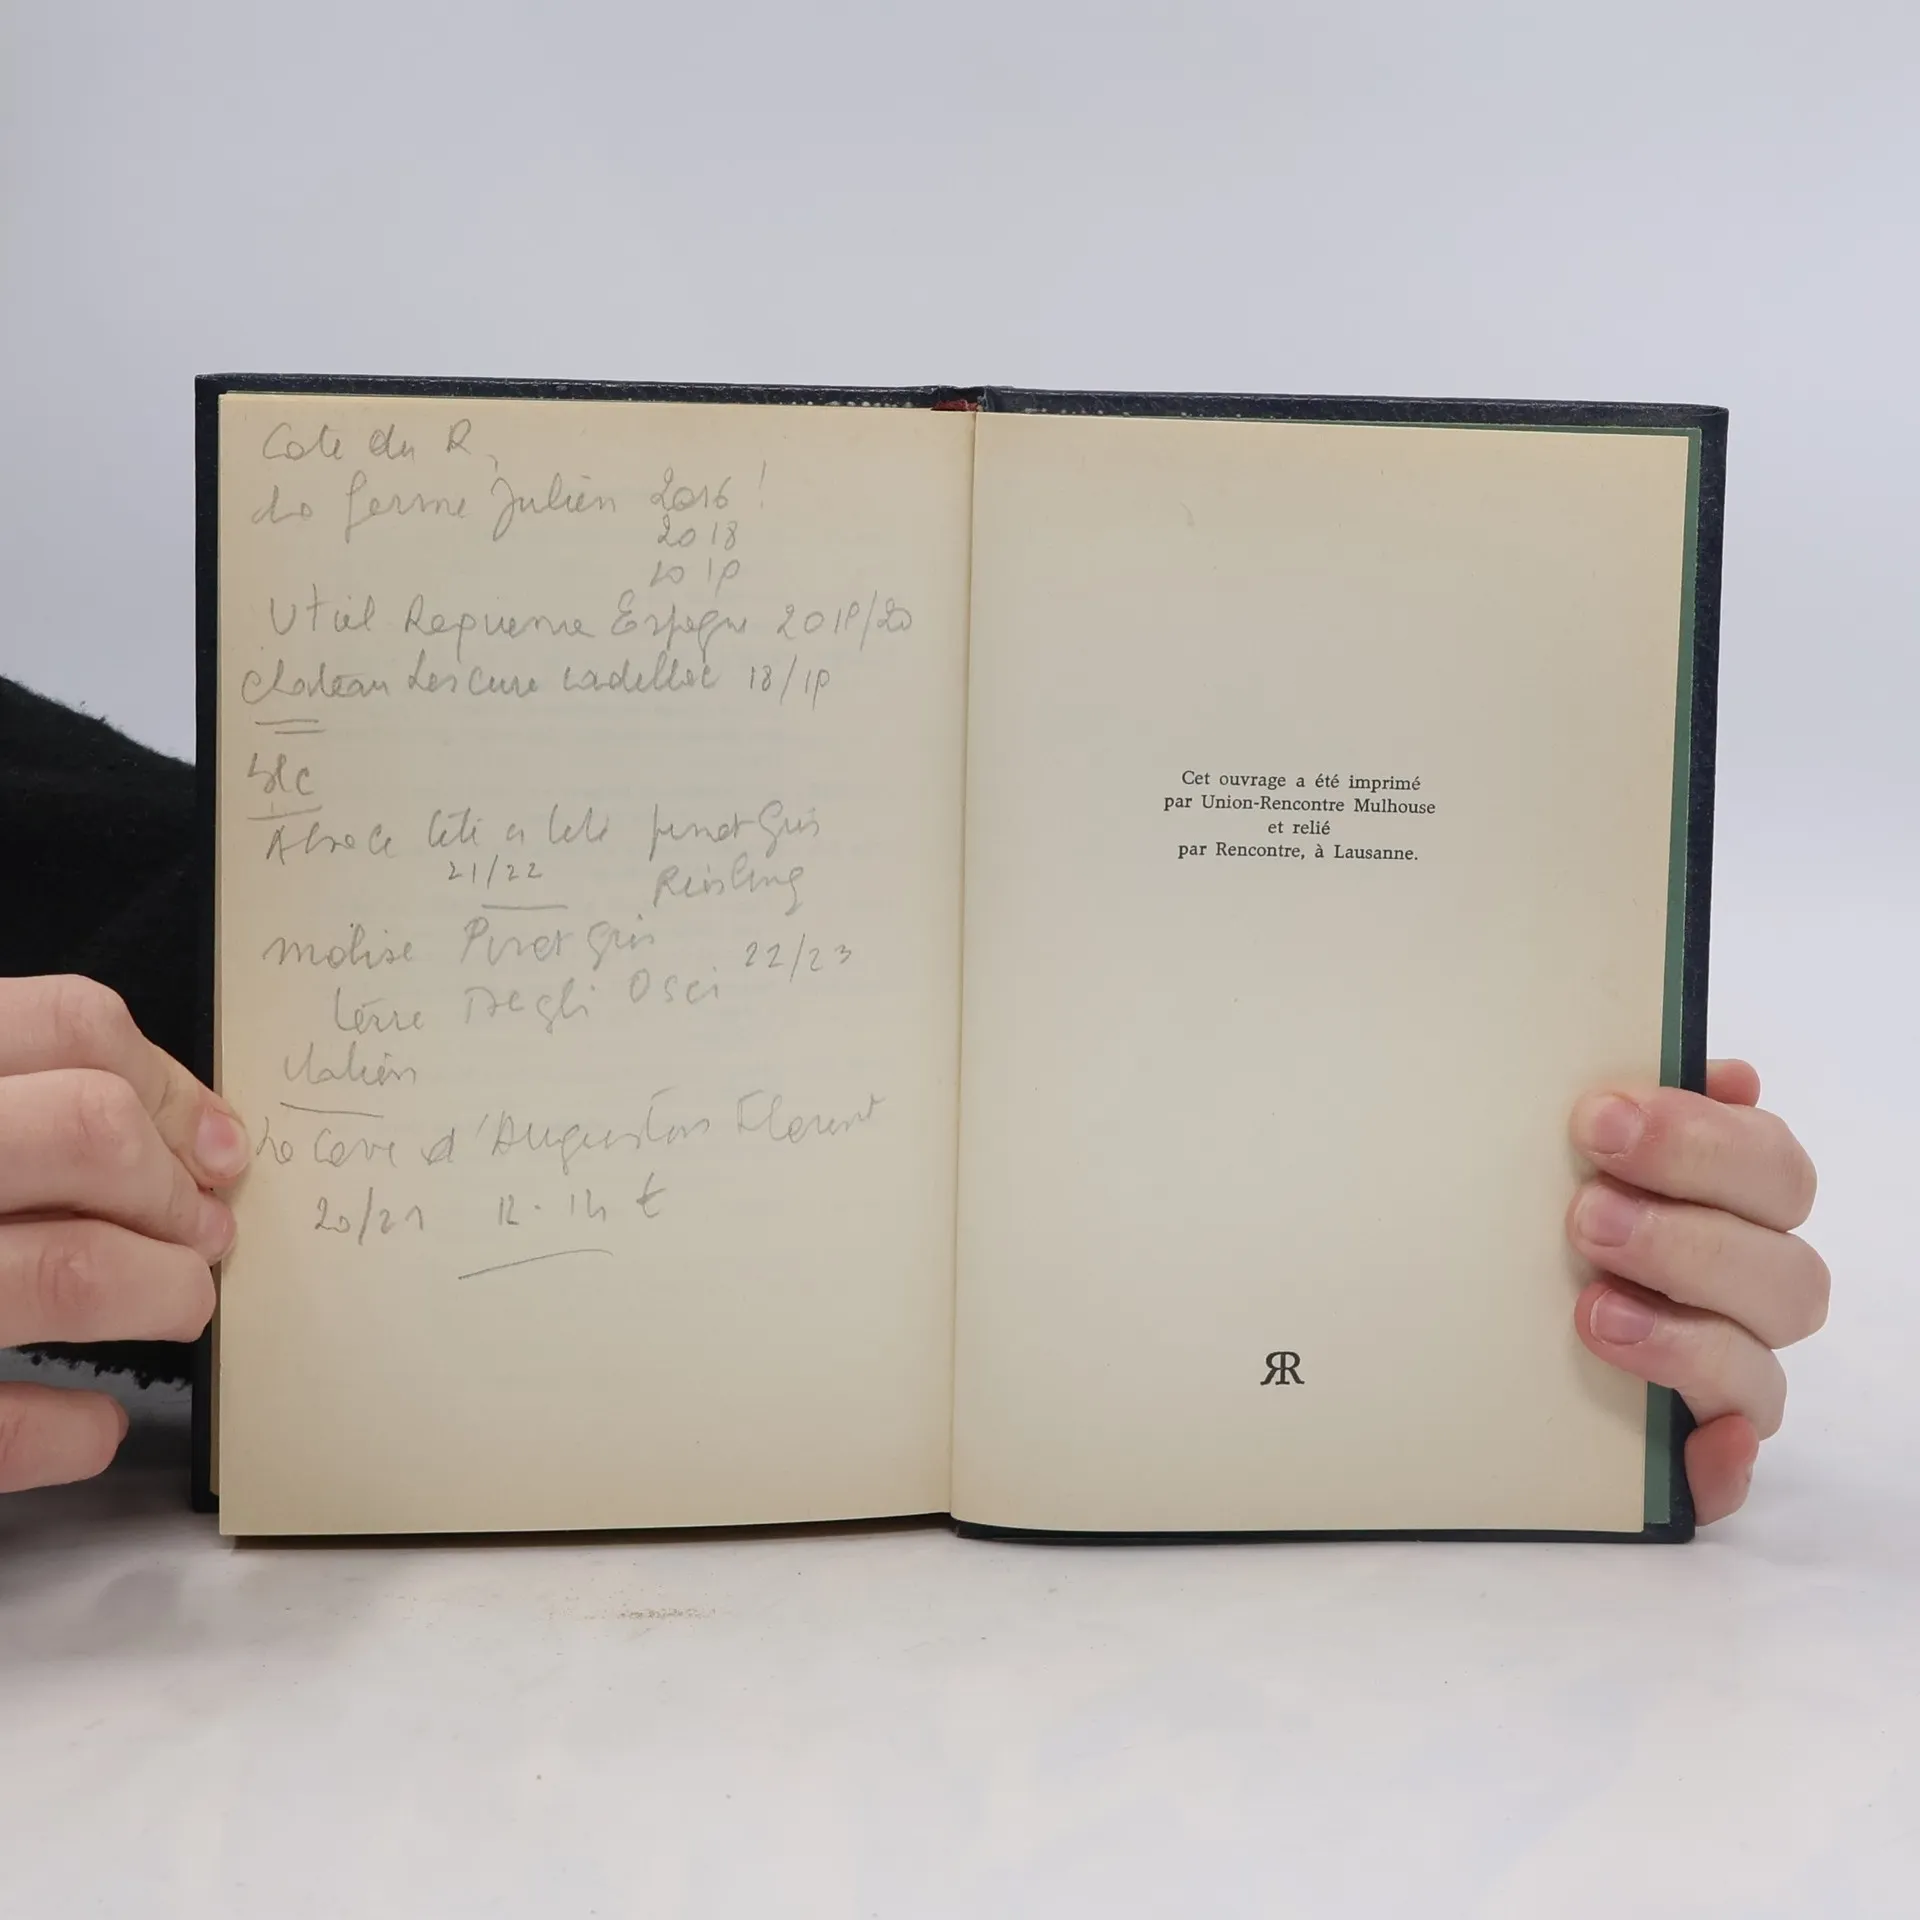 Cote du R,
La ferme Julien 2016 !
2018
2019
Utiel Requiena Espagne 2019/20
Chateau Lescure cadillac 18/19
Blc
Alsace tête a tete pinot Gris
21/22 Reisling
molise Pinot Gris 22/23
terre Degli Osci
Italien
La Cave d'Augustin Florent
20/21 12. 14 €
Cet ouvrage a été imprimé
par Union-Rencontre Mulhouse
et relié
par Rencontre, à Lausanne.
RR